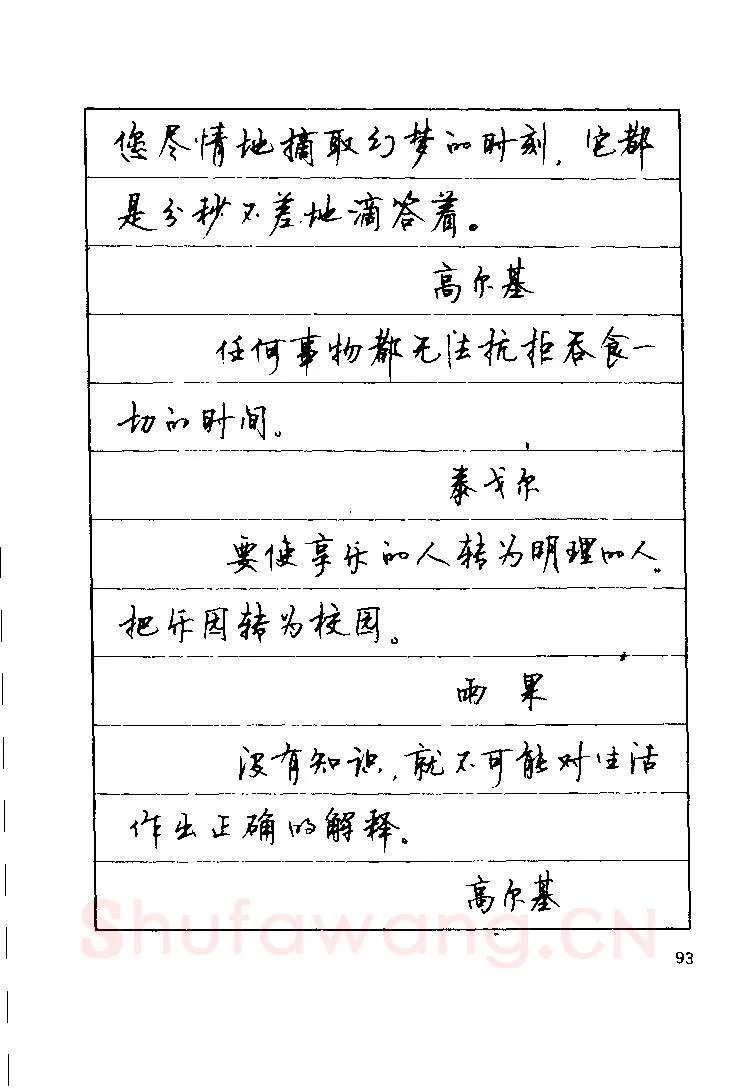 您尽情地摘取幻梦的时刻，它都
是分秒不差地滴答着。
高尔基
任何事物都无法抗拒吞食一
切的时间。
泰戈尔
要使享乐的人转为明理的人。
把乐园转为校园。
雨果
没有知识，就不可能对生活
作出正确的解释。
高尔基
Shufawang.CN
93